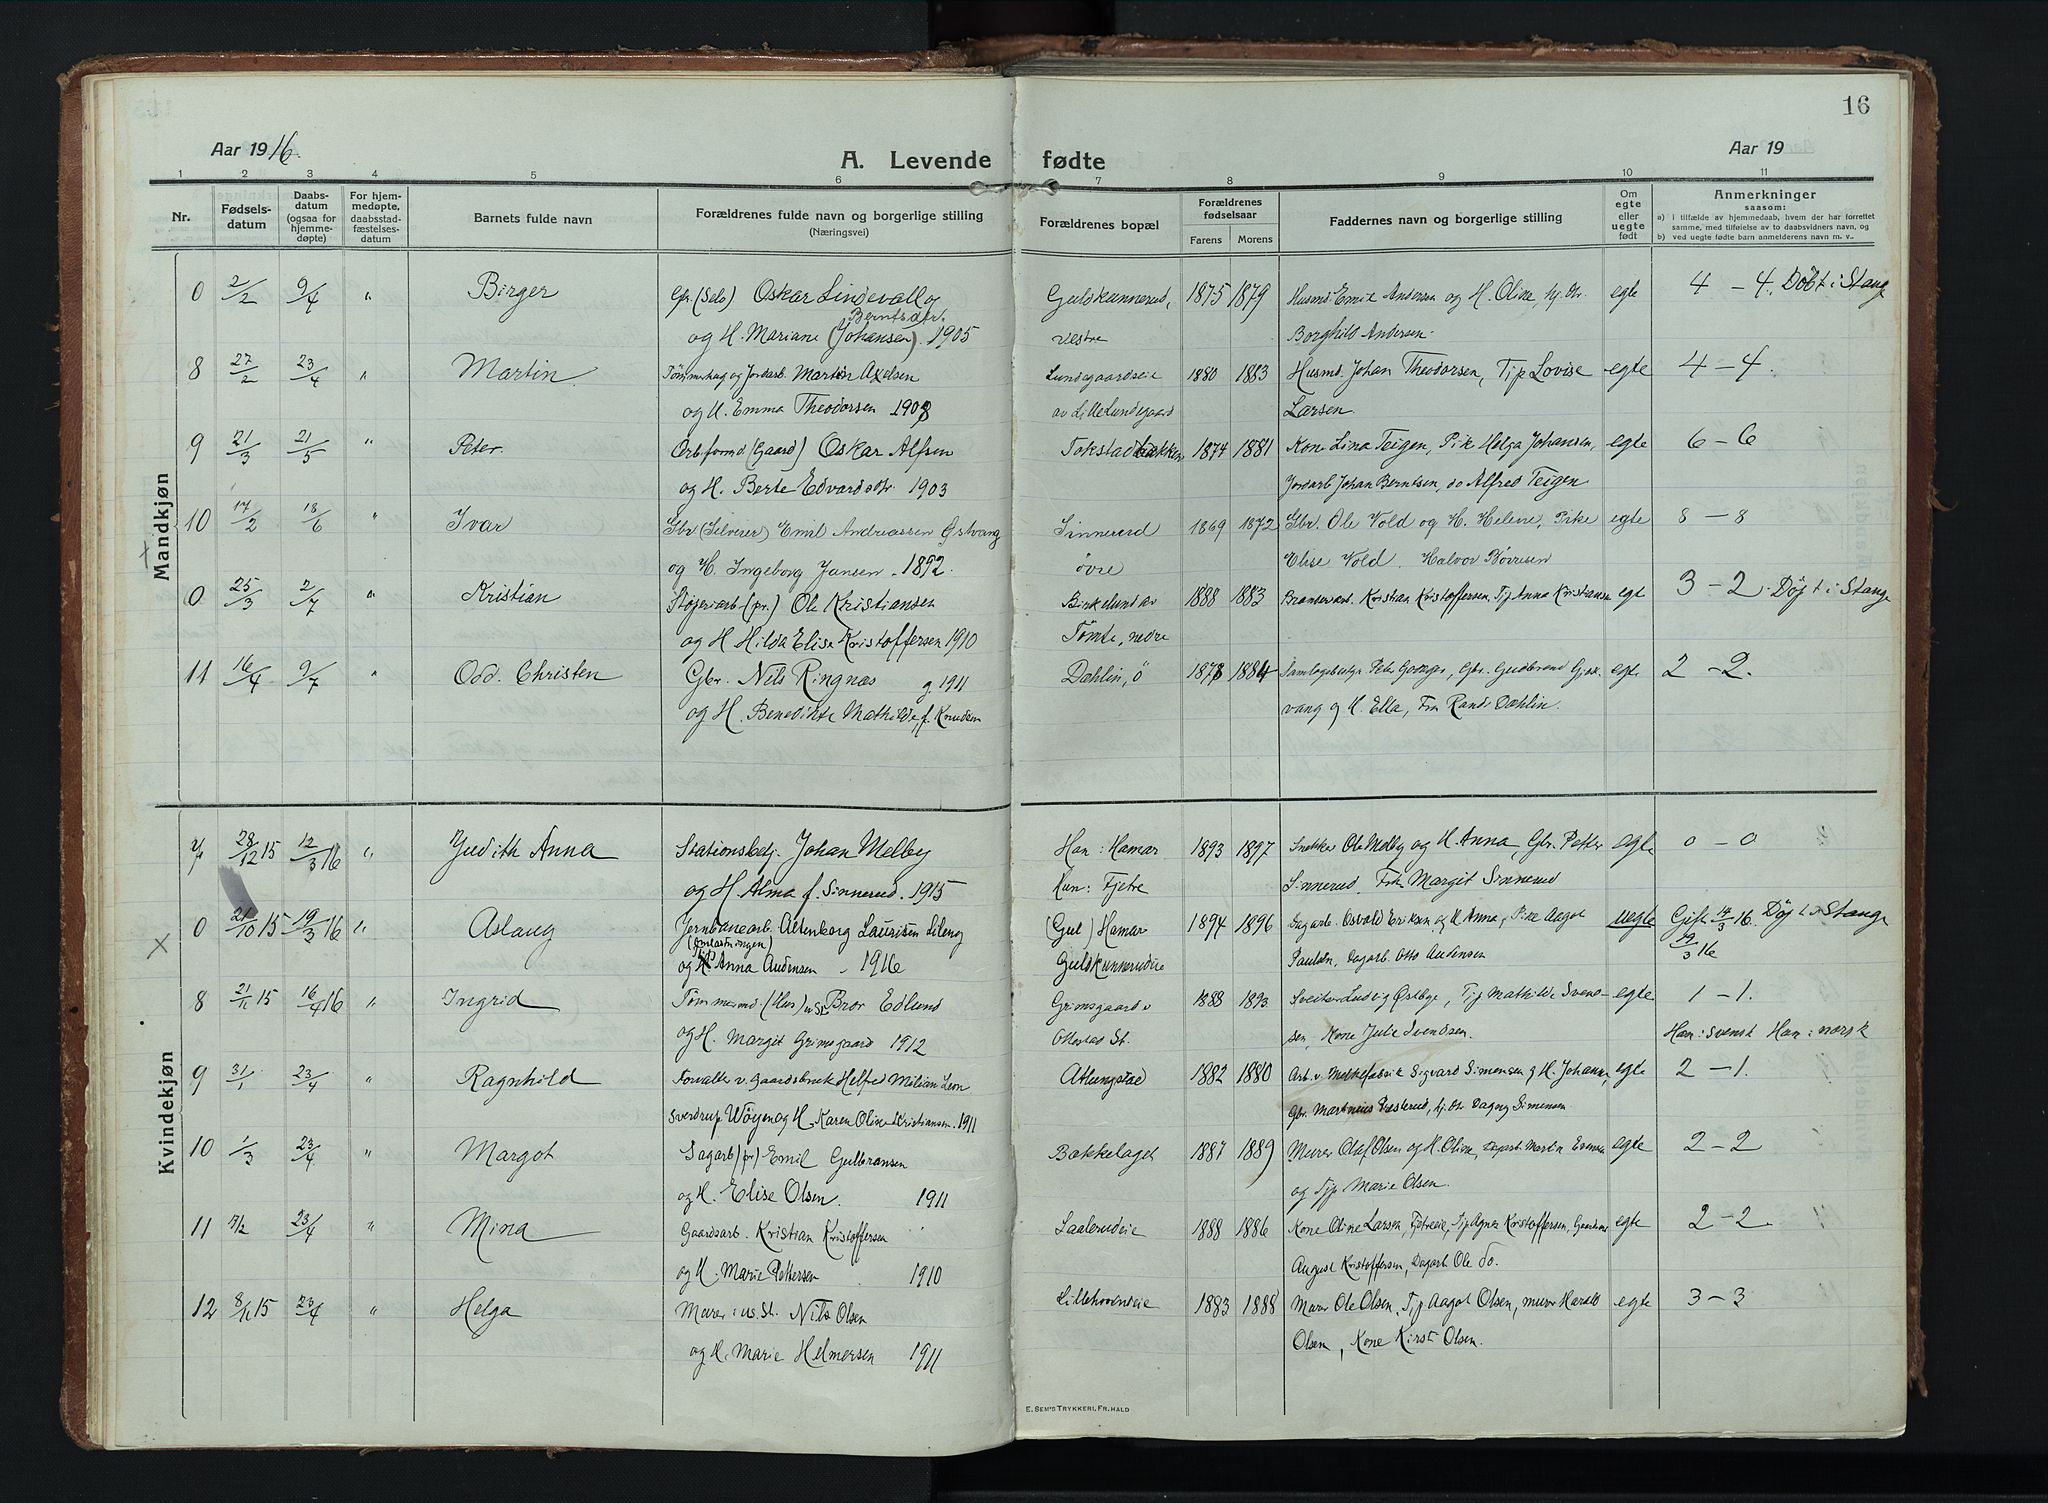 16
Aar 1916.
A. Levende fødte
Aar 19
1 2 3 4 5 6 7 8 9 10 11
Nr.
Fødsels-
datum
Daabs-
datum
(ogsaa for
hjemme-
døpte)
For hjem-
medøpte,
daabsstad-
fæstelses-
datum
Barnets fulde navn
Forældrenes fulde navn og borgerlige stilling
(Næringsvei)
Forældrenes bopæl
Forældrenes
fødselsaar
Farens Morens
Faddernes navn og borgerlige stilling
Om
egte
eller
uegte
født
Anmerkninger
saasom:
a) i tilfælde av hjemmedaab, hvem der har forrettet
samme, med tilføielse av to daabsvidners navn, og
b) ved uegte fødte barn anmelderens navn m. v.
Mandkjøn
0 2/2 9/4 " Birger Gbr. (Selv) Oskar Lindevall og Guldkunnerud, 1875 1879 Husmd Emil Andersen og H. Oline, hj. dr. egte 4 – 4. Døbt i Stange
Berntsdtr.
og H. Mariane (Johansen) 1905 vestre Borghild Andersen.
8 27/2 23/4 " Martin Tømmerhug og Jordarb. Martin Axelsen Lundgaardseie 1880 1883 Husmd. Johan Theodorsen, Tjp Lovise egte 4 – 4.
og H. Emma Theodorsen 1908 av Lille Lundgaard Larsen.
9 21/3 21/5 " Peter. Arb.formd (Gaard) Oskar Alfsen Tokstadbakken 1874 1881 Kone Lina Teigen, Pik Helga Johansen, egte 6 – 6
og H. Berte Edvardsdtr. 1903 Jordarb Johan Berntsen, do Alfred Teigen
10 14/2 18/6 " Ivar Gbr (Selveier) Emil Andreassen Østvang Sinnerud 1869 1872 Gbr. Ole Vold og H. Helene, Pike egte 8 – 8
og H. Ingeborg Jansen 1892. øvre Elise Vold. Halvor Børresen
0 25/3 2/7 " Kristian Støperiarb (pr.) Ole Kristiansen Birkelund av 1888 1883 Kristian Kristoffersen, Tjp Anna Kristiansen egt 3 – 2 Døpt i Stange
og H Hilda Elise Kristoffersen 1910 Tømte, nedre
11 16/4 9/7 " Odd. Christen Gbr. Nils Ringnæs g. 1911 Dæhlin, ø 1878 1884 Gbr. Gudbrand egt 2 – 2.
og H. Benedikte Mathilde, f. Knudsen vang og H. Ella, Frk Randi Dæhlin.
Kvindekjøn
7 28/12 15 12/3 16 " Judith Anna Stationsbetj. Johan Melby Han: Hamar 1893 1897 Snekker Ole Melby og H Anna, Gbr. Petter egte 0 – 0
og H. Alma f. Sinnerud. 1915 Kun: Fjetre Sinnerud, Frk Margit Sinnerud
0 21/10 15 19/3 16 " Aslaug Jernbanearb. Altenborg Lauritsen Lileng (Gul) Hamar 1894 1896 Dagarb. Osvald Eriksen og H Anna, Pike Aagot uegte Gift 14/3 16. Døpt i Stange
19/3 16
og Anna Audensen 1916 Guldkunnerudeie Paulsen, Dagarb. Otto Audensen
8 21/11 15 16/4 16 " Ingrid Tømmermd. (Hus) u St Bror Edlund Grimsgaard v 1888 1893 Sveiser Ludvig Østbye, Tjp Mathilde Svend- egte 1 – 1.
og H. Margit Grimsgaard 1912 Ottestad St. sen, Kone Julie Svendsen. Han: svensk Hun: norsk
9 31/1 23/4 " Ragnhild Forvalter v. Gaardsbruk Helfred Milian Leon Atlungstad 1882 1880 Arb. v. Melkefabrik Sigvard Simensen og H. Johanne, egte 2 – 1.
Sverdrup Wøyen og H. Karen Oline Kristiansen. 1911 Gbr Martinius Vesterud, hj. dr. Dagny Simensen.
10 1/3 23/4 " Margot Sagarb (pr) Emil Gulbransen Bakkelaget 1887 1889 Murer Olaf Olsen og H. Oline, Dagarb Martin Evensen egte 2 – 2
og H. Elise Olsen. 1911 og Tjp Marie Olsen.
11 17/2 23/4 " Mina Gaardsarb. Kristian Kristoffersen Saalerudeie 1888 1886 Kone Oline Larsen, Fjetreeie, Tjp Agnes Kristoffersen, egte 2 – 2.
og H. Marie Pettersen 1910 August Kristoffersen, Dagarb Ole do.
12 8/11 15 23/4 " Helga Murer i us. St. Nils Olsen Lillehovdeeie 1883 1888 Murer Ole Olsen, Tjp Aagot Olsen, murer Harald egte 3 – 3
og H. Marie Helmersen 1911 Olsen, Kone Kirst. Olsen.
E. SEM'S TRYKKERI, FR.HALD